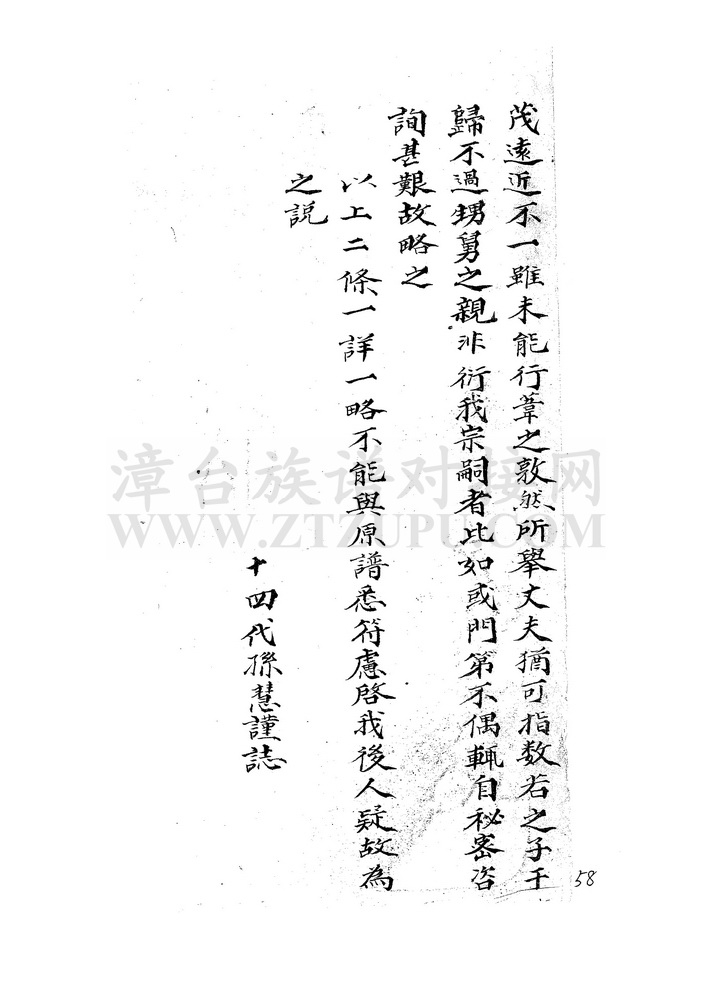 茂遠近不一雖未能行葦之敦然所舉丈夫猶可指数若之子于
歸不過甥舅之親非衍我宗嗣者比如或門第不偶輒自秘密咨
詢甚艱故略之
以上二條一詳一略不能與原譜悉符慮啓我後人疑故為
之説
十四代孫慧謹誌
58
漳台族谱对接网
WWW.ZTZUPU.COM